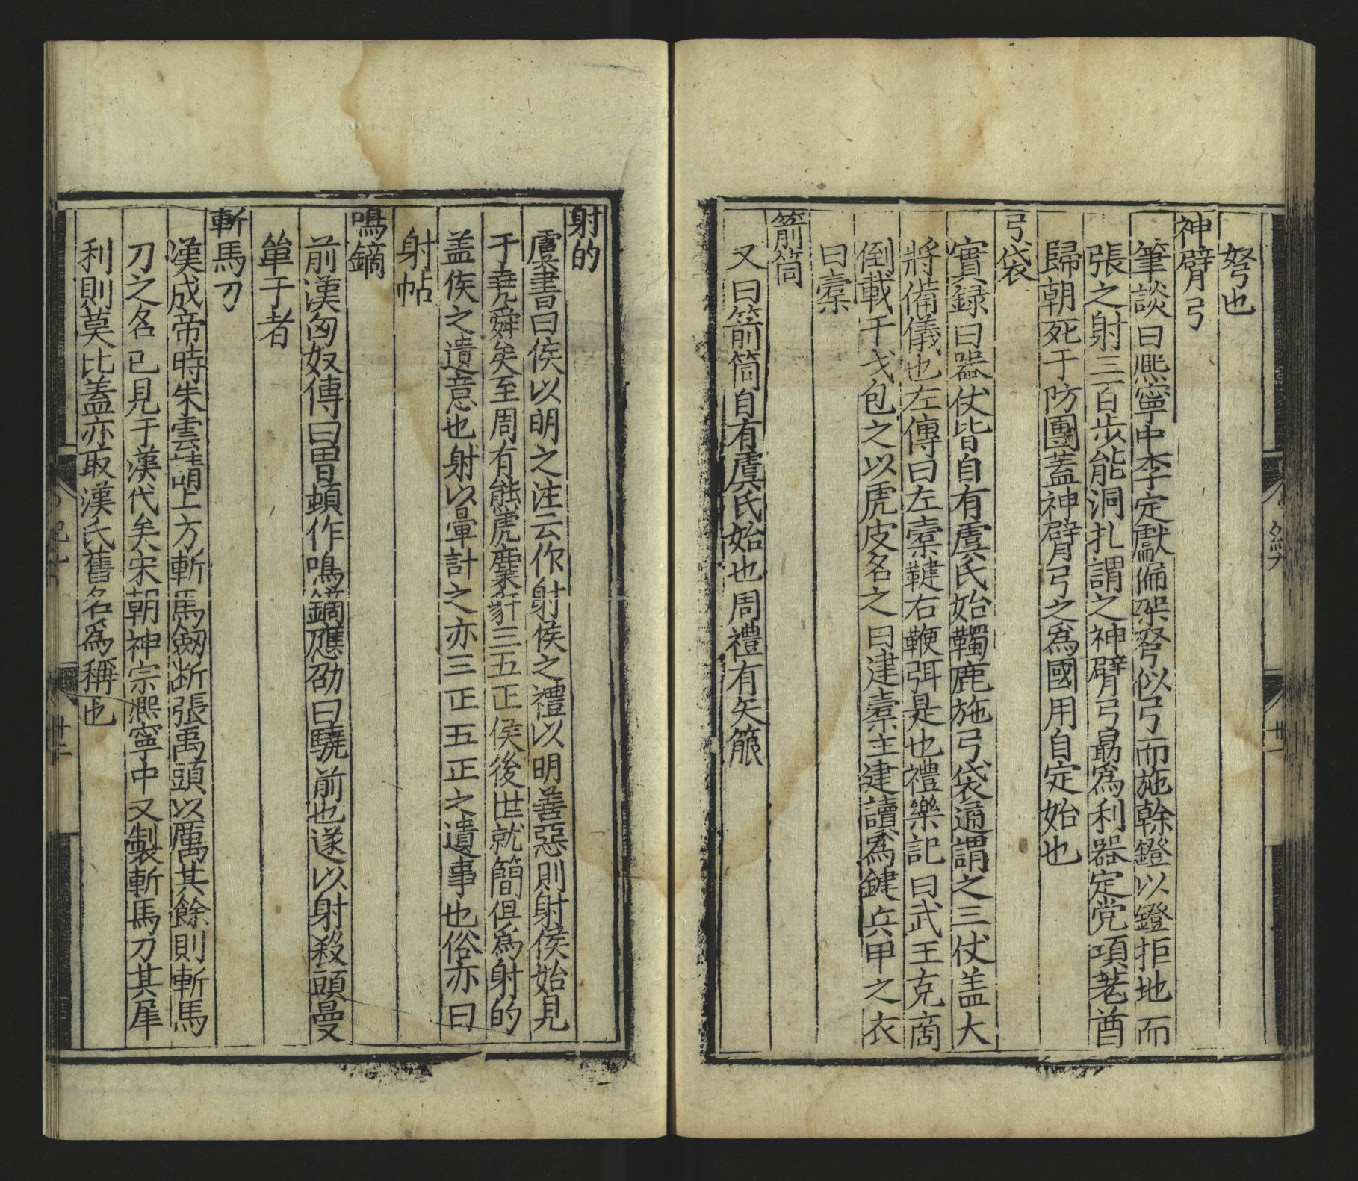 弩也
神臂弓
筆談曰熙寧中李定獻偏架弩似弓而施幹鐙以鐙拒地而
張之射三百步能洞扎謂之神臂弓最為利器定党項羌酋
歸朝死于防團蓋神臂弓之為國用自定始也
弓袋
實録曰器仗皆自有虞氏始韣鹿施弓袋通謂之三仗盖大
將備儀也左傳曰左櫜鞬右鞭弭是也禮樂記曰武王克商
倒載干戈包之以虎皮名之曰建櫜注建讀為鍵兵甲之衣
曰櫜
箭筒
又曰箭筒自有虞氏始也周禮有矢箙
射的
虞書曰侯以明之注云作射侯之禮以明善惡則射侯始見
于堯舜矣至周有熊虎麋豻三五正侯後世就簡俱為射的
盖侯之遺意也射以暈計之亦三正五正之遺事也俗亦曰
射帖
鳴鏑
前漢匈奴傳曰冒頓作鳴鏑應劭曰驍前也遂以射殺頭曼
單于者
斬馬刀
漢成帝時朱雲請上方斬馬劔斷張禹頭以厲其餘則斬馬
刀之名已見于漢代矣宋朝神宗熙寧中又製斬馬刀其犀
利則莫比蓋亦取漢氏舊名為稱也